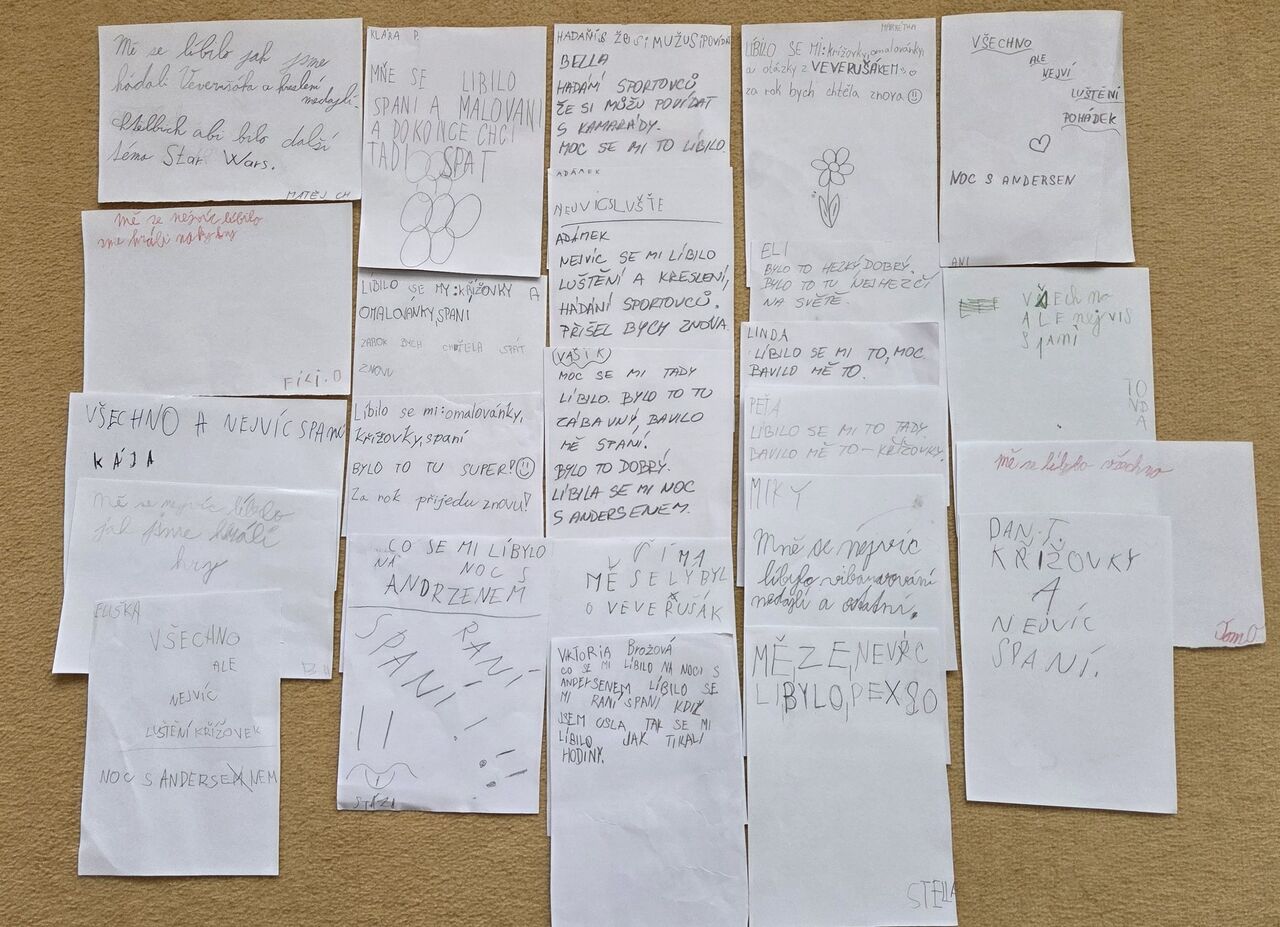 Mě se líbilo jak jsme
hádali Veverušáka a kreslení
nedajli.
chtelbich abi bilo další
téma Star Wars.
MATĚJ CH.
Mě se nejvíc líbilo
sme hráli na
FILI.O
VŠECHNO A NEJVÍC SPANÍ
KÁJA
Mě se nejvíc líbilo
jak jsme hráli
hry
ELIŠKA
VŠECHNO
ALE
NEJVÍC
LUŠTĚNÍ KŘÍŽOVEK
NOC S ANDERSENEM
KLÁRA P.
MŇE SE LIBILO
SPANI A MALOVANI
A DOKONCE CHCI
TADI SPAT
LÍBILO SE MY:KŘÍŽOVKY A
OMALOVÁNKY,SPANÍ
ZAROK BYCH CHTĚLA SPÁT
ZNOVU
Líbilo se mi:omalovánky,
křížovky,spaní
BYLO TO TU SUPER!
Za rok přijedu znovu!
CO SE MI LÍBYLO
NA NOC S
ANDRZENEM
RANÍ
SPANÍ!!
HADAŇÍS ŽE SI MUŽU SIPOVÍDAT
BELLA
HADÁNÍ SPORTOVCŮ
ŽE SI MŮŽU POVÍDAT
S KAMARÁDY.
MOC SE MI TO LÍBILO.
ADÁMEK
NEJVICSLUŠTE
ADÁMEK
NEJVÍC SE MI LÍBILO
LUŠTĚNÍ A KRESLENÍ,
HÁDÁNÍ SPORTOVCŮ.
PŘIŠEL BYCH ZNOVA.
VAŠÍK
MOC SE MI TADY
LÍBILO. BYLO TO TU
ZÁBAVNÝ, BAVILO
MĚ SPANÍ.
BYLO TO DOBRÝ.
LÍBILA SE MI NOC
S ANDERSENEM.
ŠÍMA
MĚ SE LÝBYL
O VEVEŘUŠÁK
VIKTORIA BROŽOVÁ
CO SE MI LÍBILO NA NOCI S
ANDERSENEM LÍBILO SE
MI RANÍ SPANÍ KDIŽ
JSEM USLA TAK SE MI
LÍBILO JAK TIKALI
HODINY.
MARKÉTKA
LÍBILO SE MI:křížovky,omalovánky,
a otázky z VEVERUŠÁKEM
za rok bych chtěla znova
ELI
BYLO TO HEZKÝ DOBRÝ.
BYLO TO TU NEJHEZČÍ
NA SVĚTE.
LINDA
LÍBILO SE MI TO, MOC
BAVILO MĚ TO.
PEŤA
LÍBILO SE MI TO TADY.
BAVILO MĚ TO - KŘÍŽOVKY.
MIKY
Mně se nejvíc
líbylo vibarvování
nedajlí a ostatní.
MĚZE,NEVÍC
LIBYLO,PEXSO
STELLA
VŠECHNO
ALE
NEJVÍ
LUŠTĚNÍ
POHÁDEK
NOC S ANDERSEN
ANI
VŠEchno
ALE nejvis
Spaní
TO
ND
A
mě se líbylo všechno
TomO
DAN.T.
KŘÍŽOVKY
A
NEJVÍC
SPANÍ.